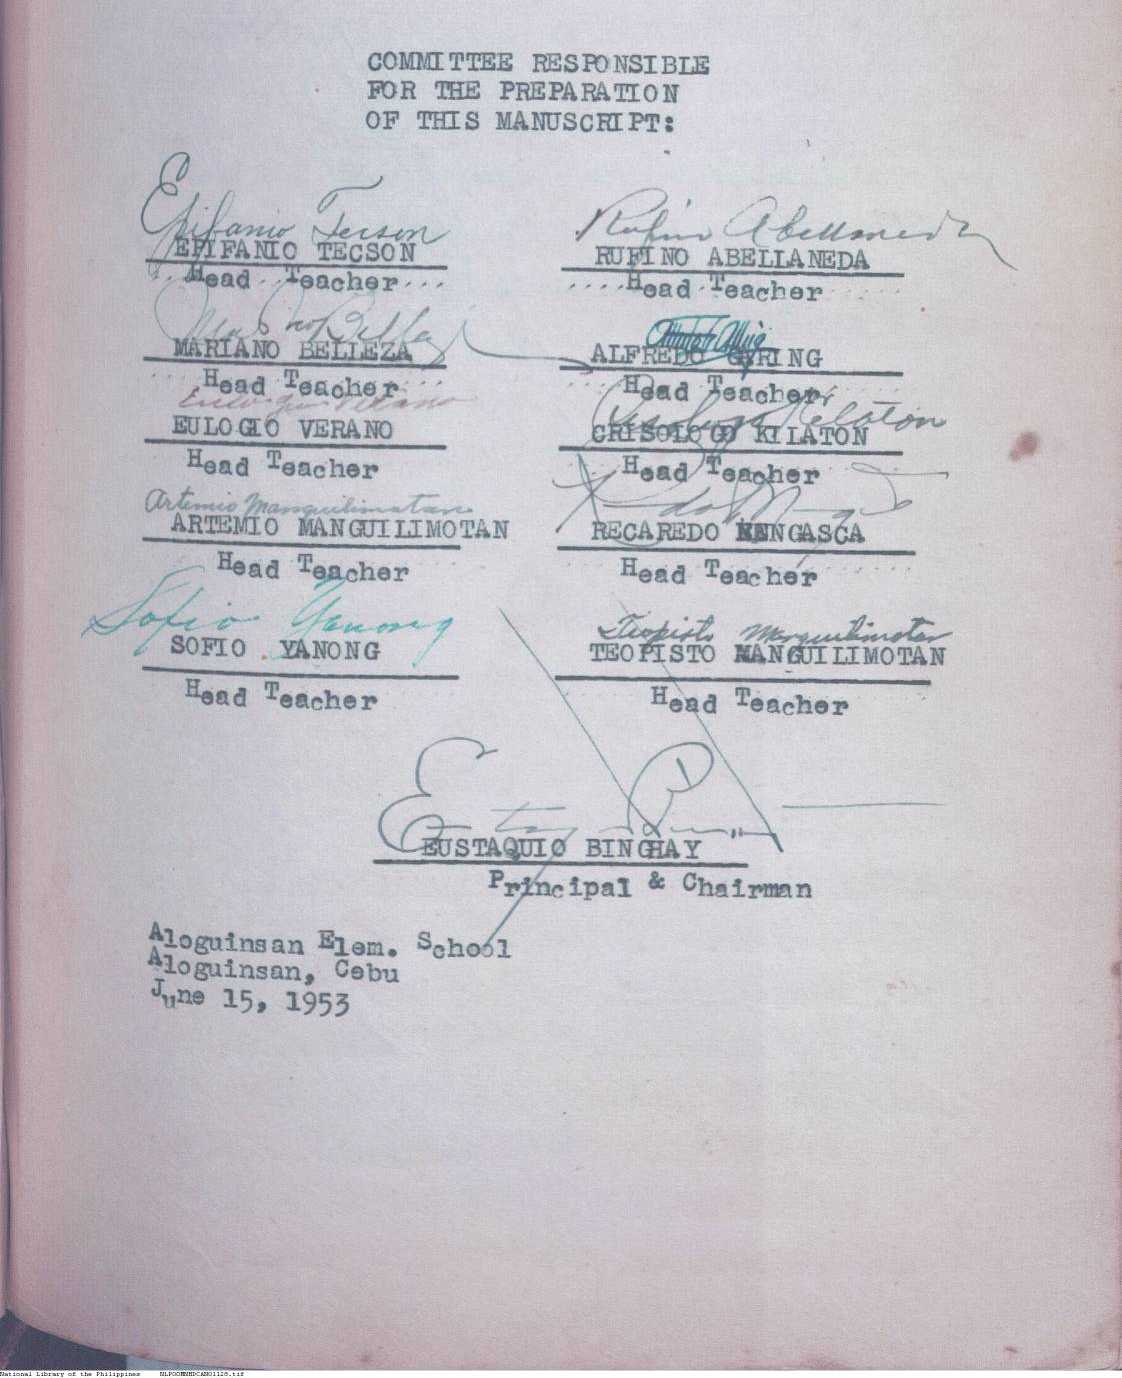 COMMITTEE RESPONSIBLE
FOR THE PREPARATION
OF THIS MANUSCRIPT:
Epifanio Tecson
EPIFANIO TECSON
Head Teacher
Rufino Abellaneda
RUFINO ABELLANEDA
Head Teacher
MARIANO BELLEZA
Head Teacher
ALFREDO GYRING
Head Teacher
Eulogio Verano
EULOGIO VERANO
Head Teacher
Crisologo Kilaton
CRISOLOGO KILATON
Head Teacher
Artemio Manguilimotan
ARTEMIO MANGUILIMOTAN
Head Teacher
RECAREDO MANGASCA
Head Teacher
Sofio Yanong
SOFIO YANONG
Head Teacher
Teopisto Manguilimotan
TEOPISTO MANGUILIMOTAN
Head Teacher
EUSTAQUIO BINGHAY
Principal & Chairman
Aloguinsan Elem. School
Aloguinsan, Cebu
June 15, 1953
National Library of the Philippines NLPOOMNHDCAN01128.tif